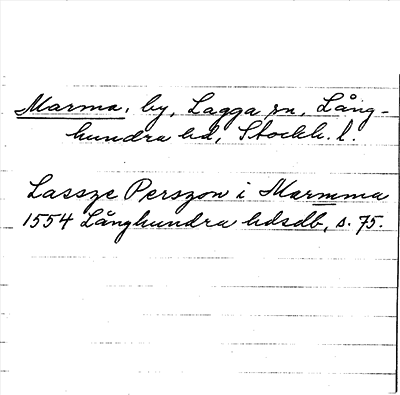 Marma, by, Lagga sn, Lång-
hundra hd, Stockh. l.
Lassze Perszon i Marmma
1554 Långhundra hdsdb, s. 75.